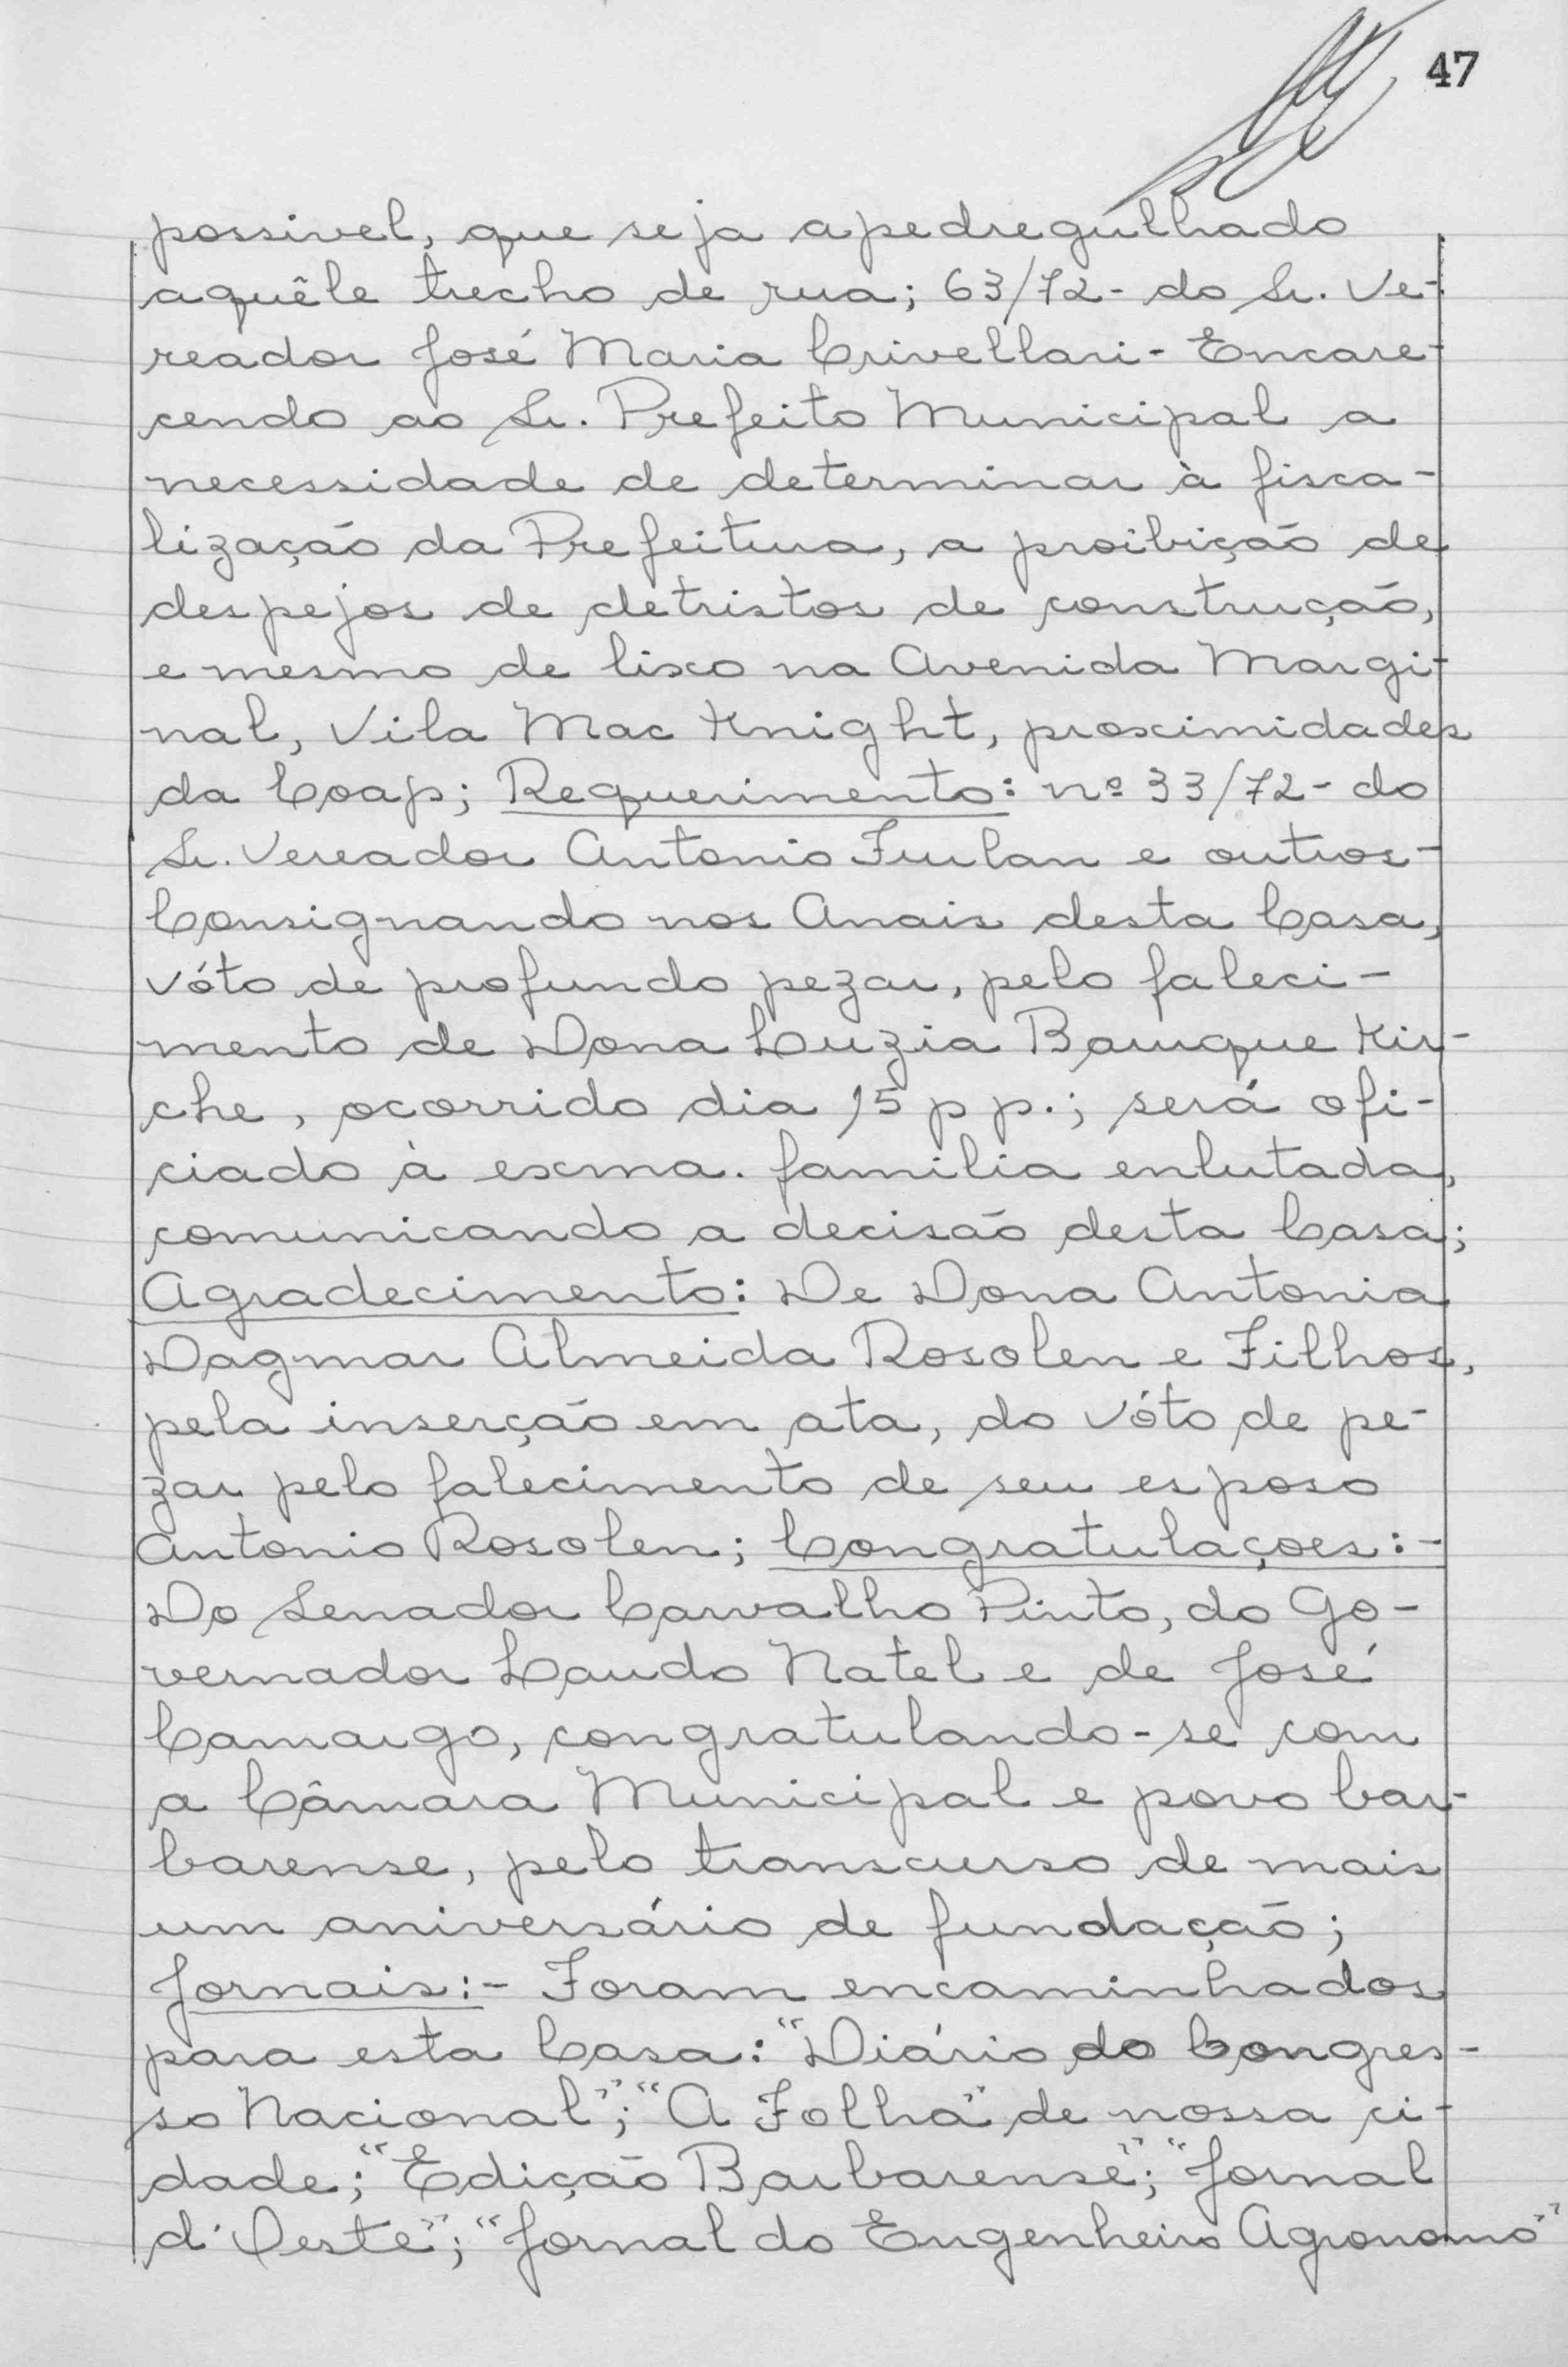 47
possivel, que seja apedregulhado
aquêle trecho de rua; 63/72- do Sr. Ve-
reador José Maria Crivellari- Encare-
cendo ao Sr. Prefeito Municipal a
necessidade de determinar à fisca-
lização da Prefeitura, a proibição de
despejos de detristos de construção,
e mesmo de lixo na Avenida Margi-
nal, Vila Mac Knight, proximidades
da Coap; Requerimento: nº 33/72- do
Sr. Vereador Antonio Furlan e outros-
Consignando nos Anais desta Casa,
vóto de profundo pezar, pelo faleci-
mento de Dona Luzia Bauque Kir-
che, ocorrido dia 15 p p.; será ofi-
ciado à exma. familia enlutada,
comunicando a decisão desta Casa;
Agradecimento: De Dona Antonia
Dagmar Almeida Rosolen e Filhos,
pela inserção em ata, do vóto de pe-
zar pelo falecimento de seu esposo
Antonio Rosolen; Congratulaçoes:-
Do Senador Carvalho Pinto, do Go-
vernador Laudo Natel e de José
Camargo, congratulando-se com
a Câmara Municipal e povo bar-
barense, pelo transcurso de mais
um aniversário de fundação;
Jornais:- Foram encaminhados
para esta Casa: "Diário do Congres-
so Nacional"; "A Folha" de nossa ci-
dade; "Edição Barbarense"; "Jornal
d'Oeste"; "Jornal do Engenheiro Agronomo"